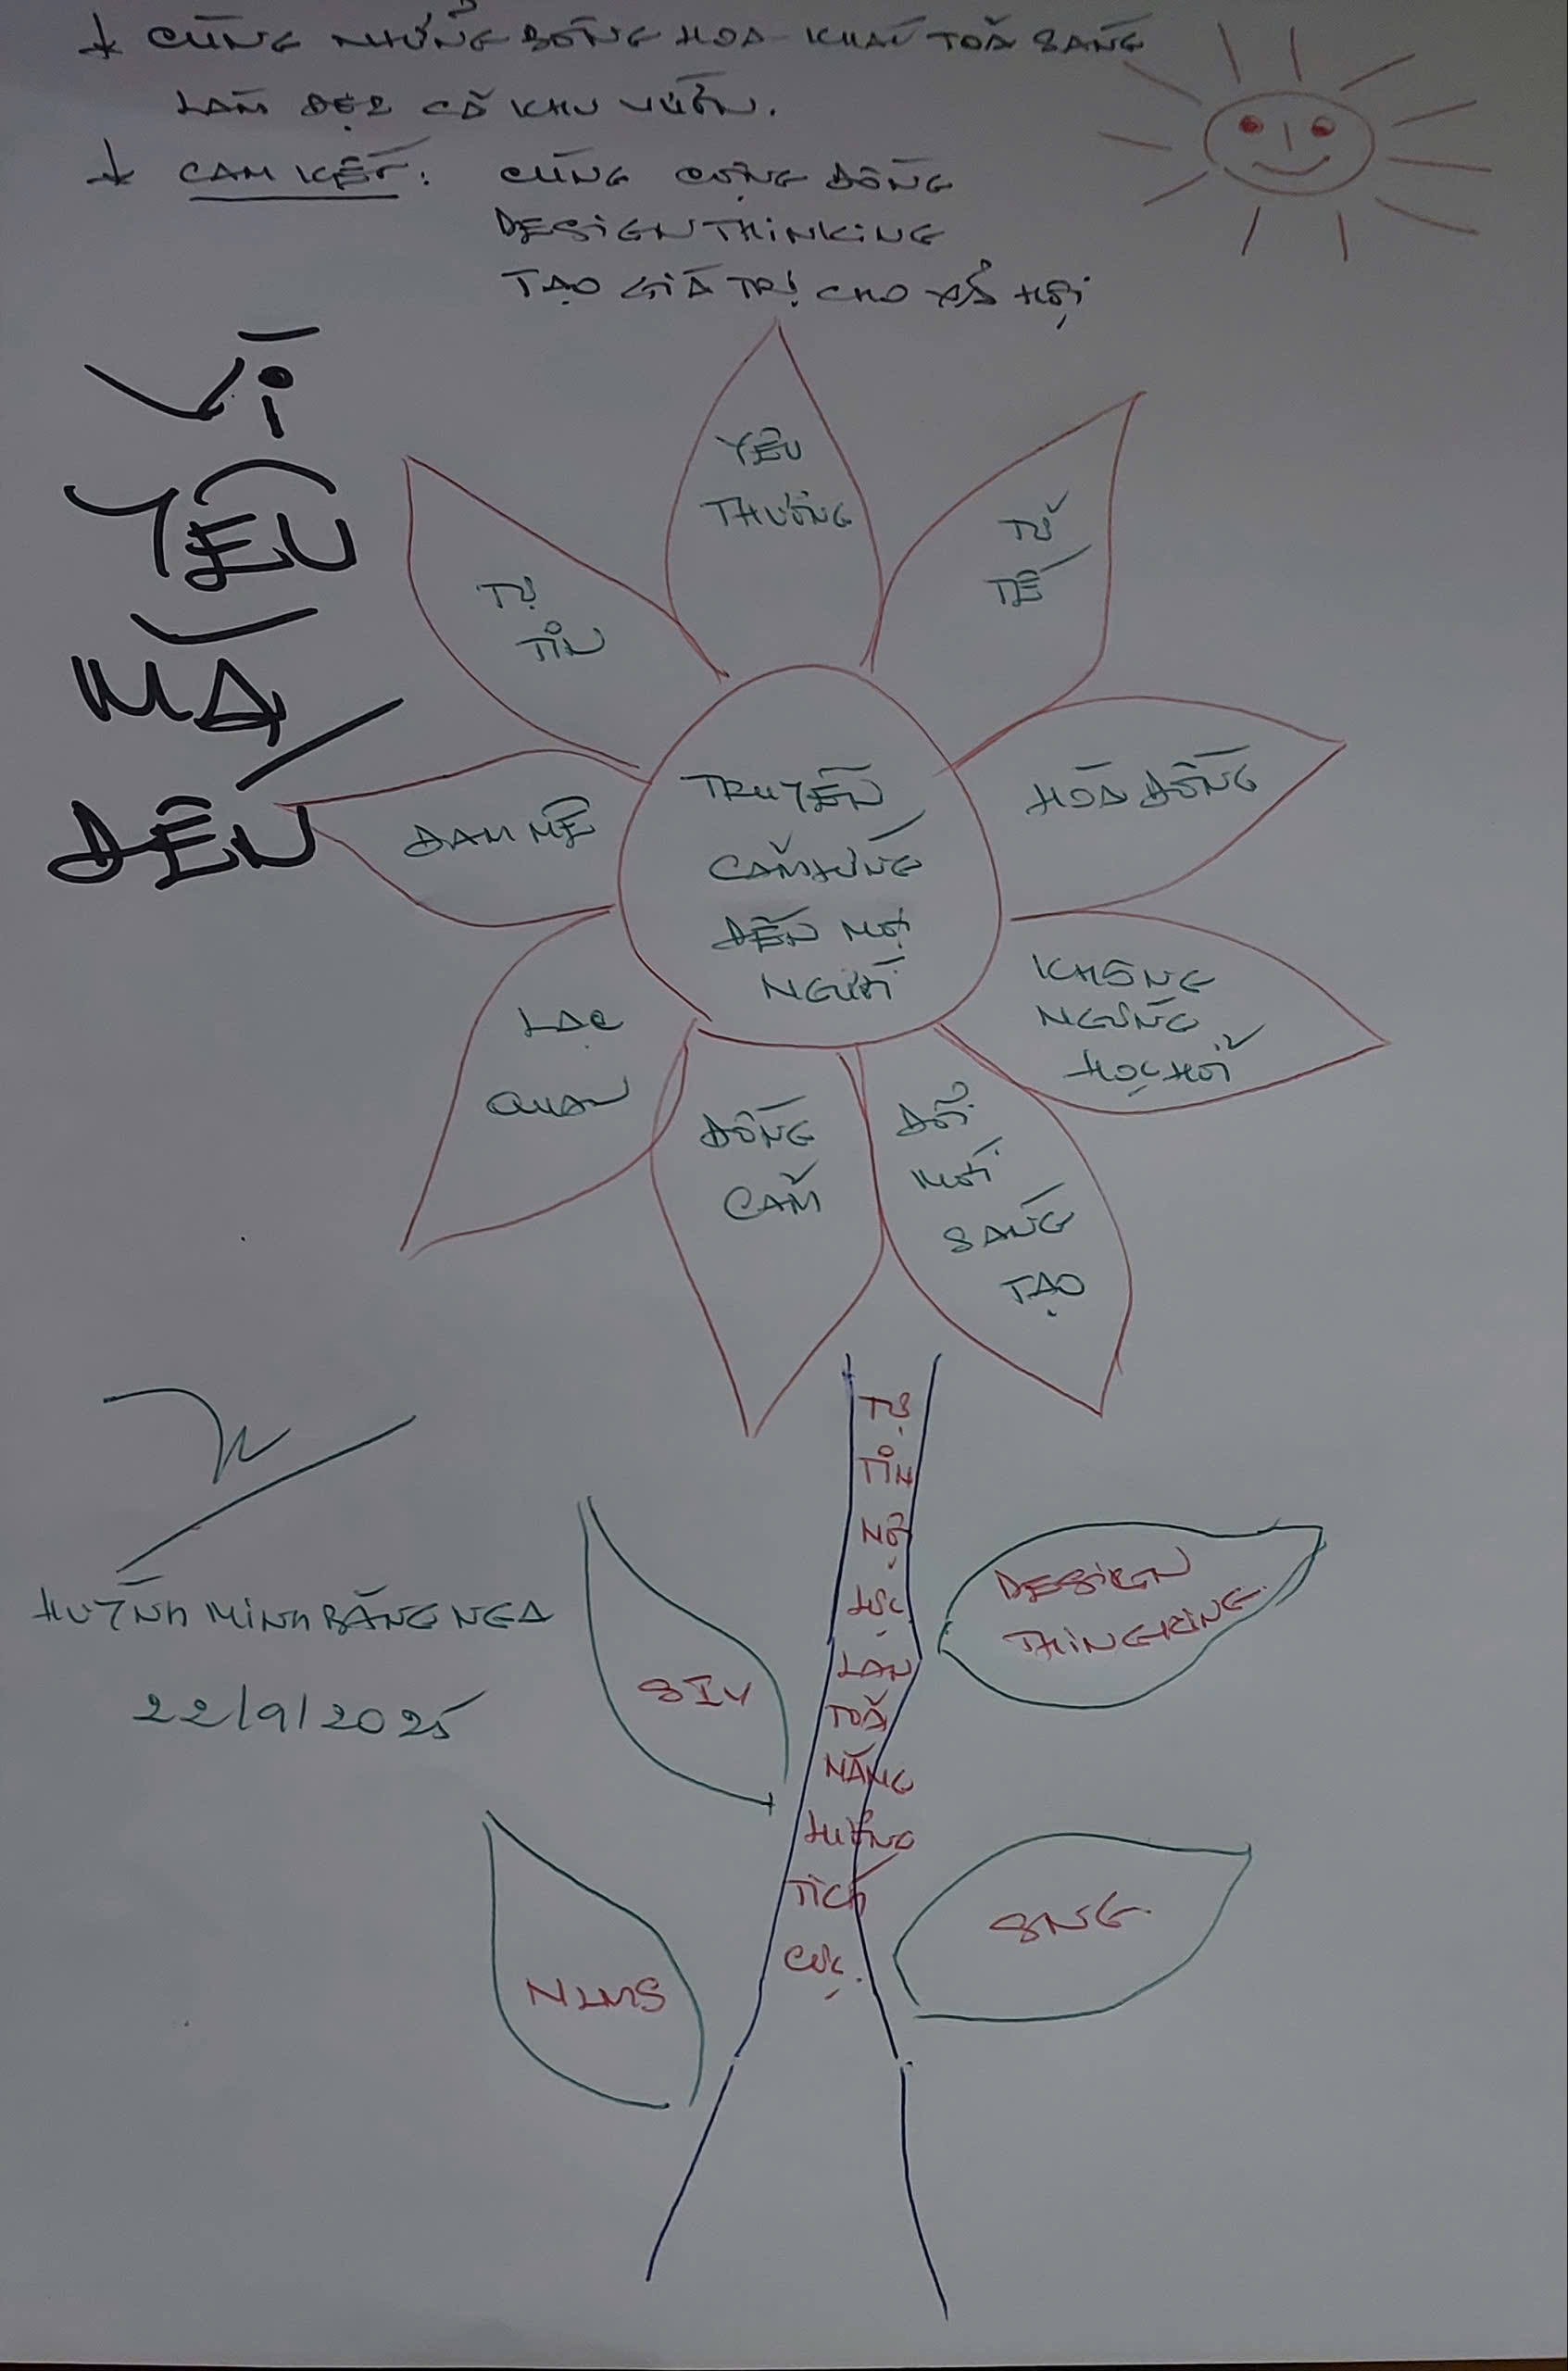 CÙNG NHỮNG BÔNG HOA KHÁC TOẢ SÁNG
LÀM ĐẸP CẢ KHU VƯỜN.
CAM KẾT: CÙNG CỘNG ĐỒNG
DESIGN THINKING
TẠO GIÁ TRỊ CHO XÃ HỘI
VÌ
YÊU
MÀ
ĐẾN
YÊU
THƯƠNG
TỬ
TẾ
TỰ
TIN
HOÀ ĐỒNG
ĐAM MÊ
TRUYỀN
CẢM HỨNG
ĐẾN MỌI
NGƯỜI
KHÔNG
NGỪNG
HỌC HỎI
LẠC
QUAN
ĐỒNG
CẢM
ĐỔI
MỚI
SÁNG
TẠO
TỰ
TIN
NỖ
LỰC
LAN
TOẢ
NĂNG
LƯỢNG
TÍCH
CỰC.
DESIGN
THINGKING
SIY
HUỲNH MINH BĂNG NGA
22/9/2025
SNG
NLMS